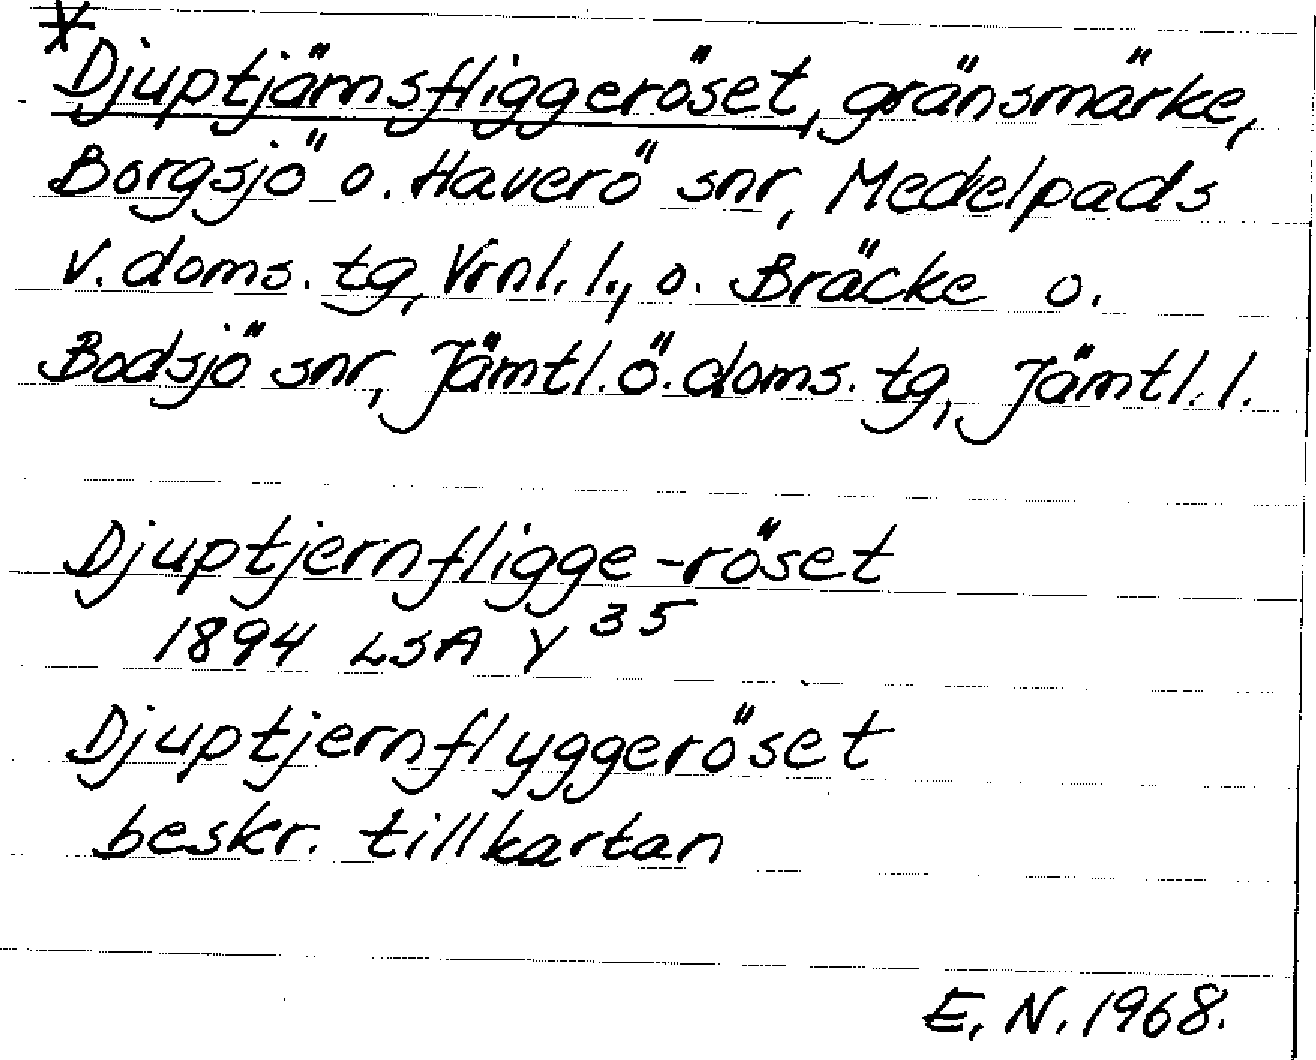 Djuptjärnsfliggeröset, gränsmärke,
Borgsjö o. Haverö snr, Medelpads
v. doms. tg, Vrnl. l., o. Bräcke o.
Bodsjö snr, Jämtl. ö. doms. tg, Jämtl. l.
Djuptjernfligge-röset
1894 LSA Y 35
Djuptjernflyggeröset
beskr. till kartan
E. N. 1968.